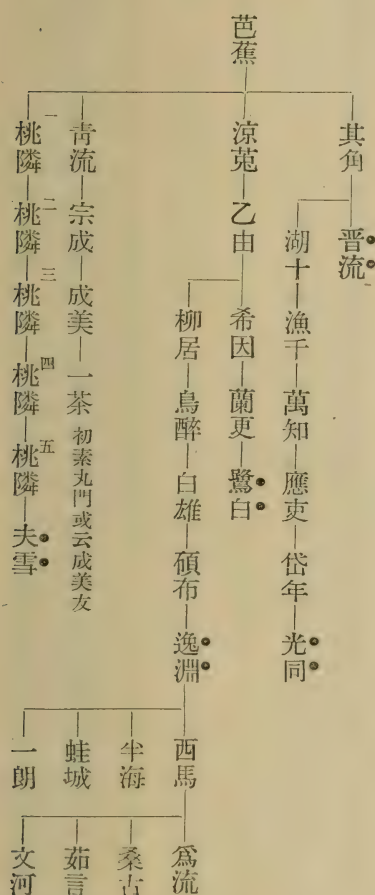 芭蕉
其角
晋流
湖十
漁千
萬知
應吏
岱年
光同
涼菟
乙由
希因
蘭更
鷺白
柳居
鳥醉
白雄
碩布
逸淵
西馬
爲流
桑古
茹言
文河
半海
蛙城
一朗
靑流
宗成
成美
一茶 初素丸門或云成美友
一 桃隣
二 桃隣
三 桃隣
四 桃隣
五 桃隣
夫雪